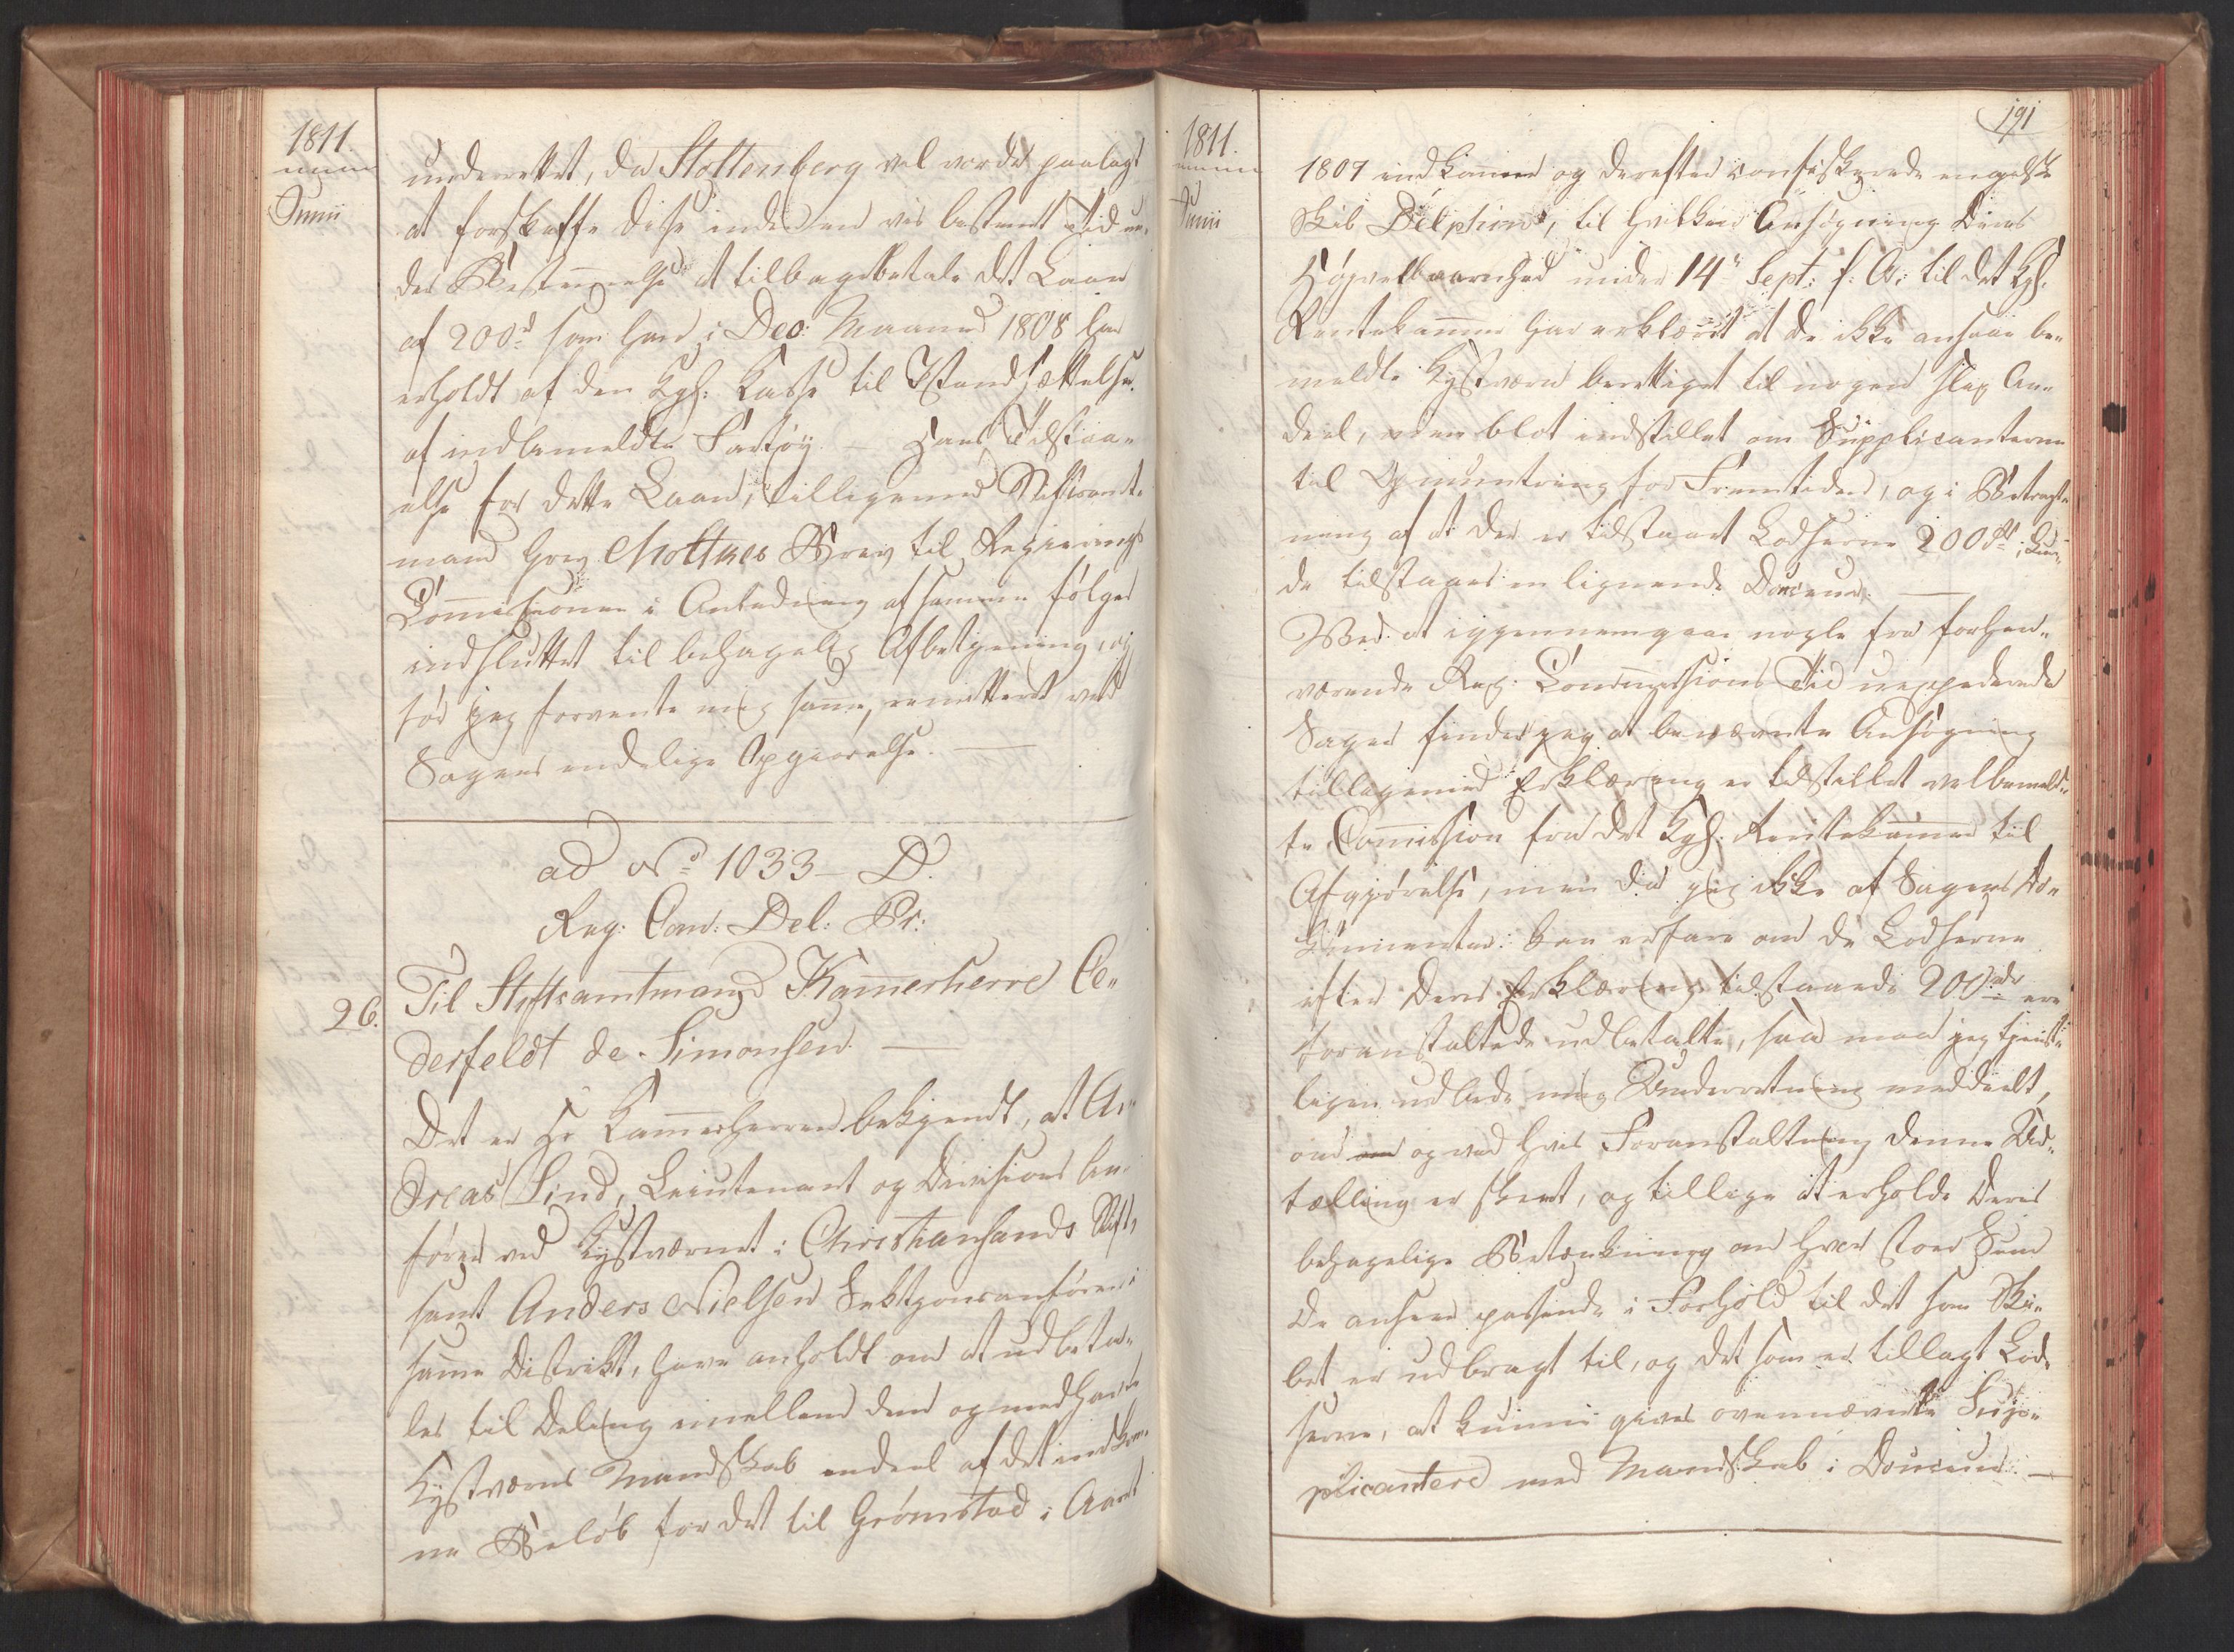 1811.
Junii
underrettet, da Stoltenberg vel vorder paalagt
at forskaffe disse inden en vis bestemt Tid un-
der Bestemmelse at tilbagebetale det Laan
af 200rd som han i Dec: Maaned 1808 har
erholdt af den Kgl: Kasse til Istandsættelse
af indbemeldte Fartøy. — Hans Tilstaa-
else for dette Laan, tilligemed Stiftsamt-
mand Grev Moltkes Brev til Regierings
Commissionen i Anledning af samme følger
indsluttet til behagelig Afbetjening, og
tør jeg forvente mig samme remitteret ved
Sagens endelige Opgiørelse. —
ad No 1033 – D.
Reg: Com: Del: Pr:
26.
Til Stiftsamtmand Kammerherre Ce-
derfeldt de Simonsen. —
Det er Hr Kammerherren bekjendt, at An-
dreas Lind, Lieutenant og Divisions An-
fører ved Kystværnet i Christiansands Stift,
samt Anders Nielsen Sektionsanfører i
samme Distrikt, have anholdt om at udbeta-
les til Deling imellem dem og medhavte
Kystværns Mandskab endeel af det indkom-
ne Beløb for det til Grømstad i Aaret
1811.
Junii
191
1807 indkomne og derefter confiskerede engelske
Skib Delphin, til hvilken Ansøgning Deres
Høyvelbaarenhed under 14 Sept: f: A: til det Kgl.
Rentekammer har erklæret at De ikke ansaae be-
meldte Kystværn berettiget til nogen slags An-
deel, men blot indstillet om Supplicanterne
til Opmuntring for Fremtiden, og i Betragt-
ning af at der er tilstaaet Lodserne 200rd, kun-
de tilstaaes en lignende Douceur. —
Ved at igjennemgaae nogle fra forhen-
værende Reg: Commissions Tid uexpederede
Sager finder jeg at benævnte Ansøgning
tilligemed Erklæring er tilstillet velbemeld-
te Commission fra det Kgl: Rentekammer til
Afgjørelse, men da jeg ikke af Sagens Do-
kumenter kan erfare om de Lodserne
efter Deres Erklæring tilstaaede 200rdr ere
foranstaltede udbetalte, saa maa jeg tjenst-
ligen udbede mig Underretning meddeelt,
om og ved hvis Foranstaltning denne Ud-
tælling er skeet, og tillige at erholde Deres
behagelige Betænkning om hvor stor Sum
De anseer passende i Forhold til det som Ski-
bet er udbragt til, og det som er tillagt Lod-
serne, at kunne gives ovennævnte Sup-
plicantere med Mandskab i Douceur. —